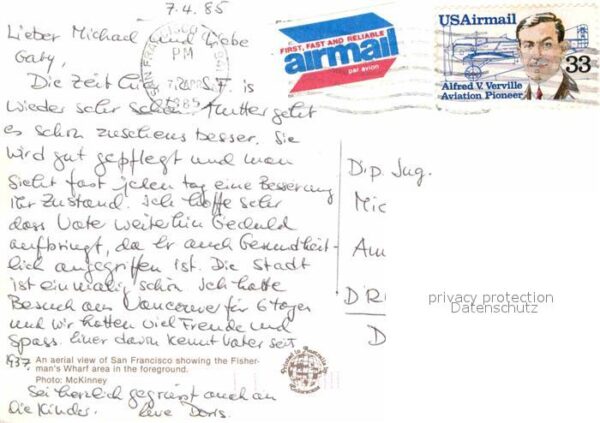 7.4.85
Lieber Michael und Liebe
Gaby,
Die Zeit hier in S.F. is
wieder sehr schön. Mutter geht
es schon zusehens besser. Sie
wird gut gepflegt und man
sieht fast jeden tag eine Besserung
Ihr Zustand. Ich hoffe sehr
dass Vate weiterhin Geduld
aufbringt, da Er auch Gesundheit-
lich angegriffen ist. Die Stadt
ist einmalig schön. Ich hatte
Besuch aus Vancouver für 6 tage
und wir hatten viel Freude und
Spass. Einer davon kennt Vater seit
1937
An aerial view of San Francisco showing the Fisher-
man's Wharf area in the foreground.
Photo: McKinney
Sei herzlich gegrüsst auch an
die Kinder. Eure Doris.
SAN FRANCISCO
PM
1985
FIRST, FAST AND RELIABLE
airmail
par avion
USAirmail
33
Alfred V. Verville
Aviation Pioneer
Dip. Jng.
Mic
Am
DR
D
privacy protection
Datenschutz